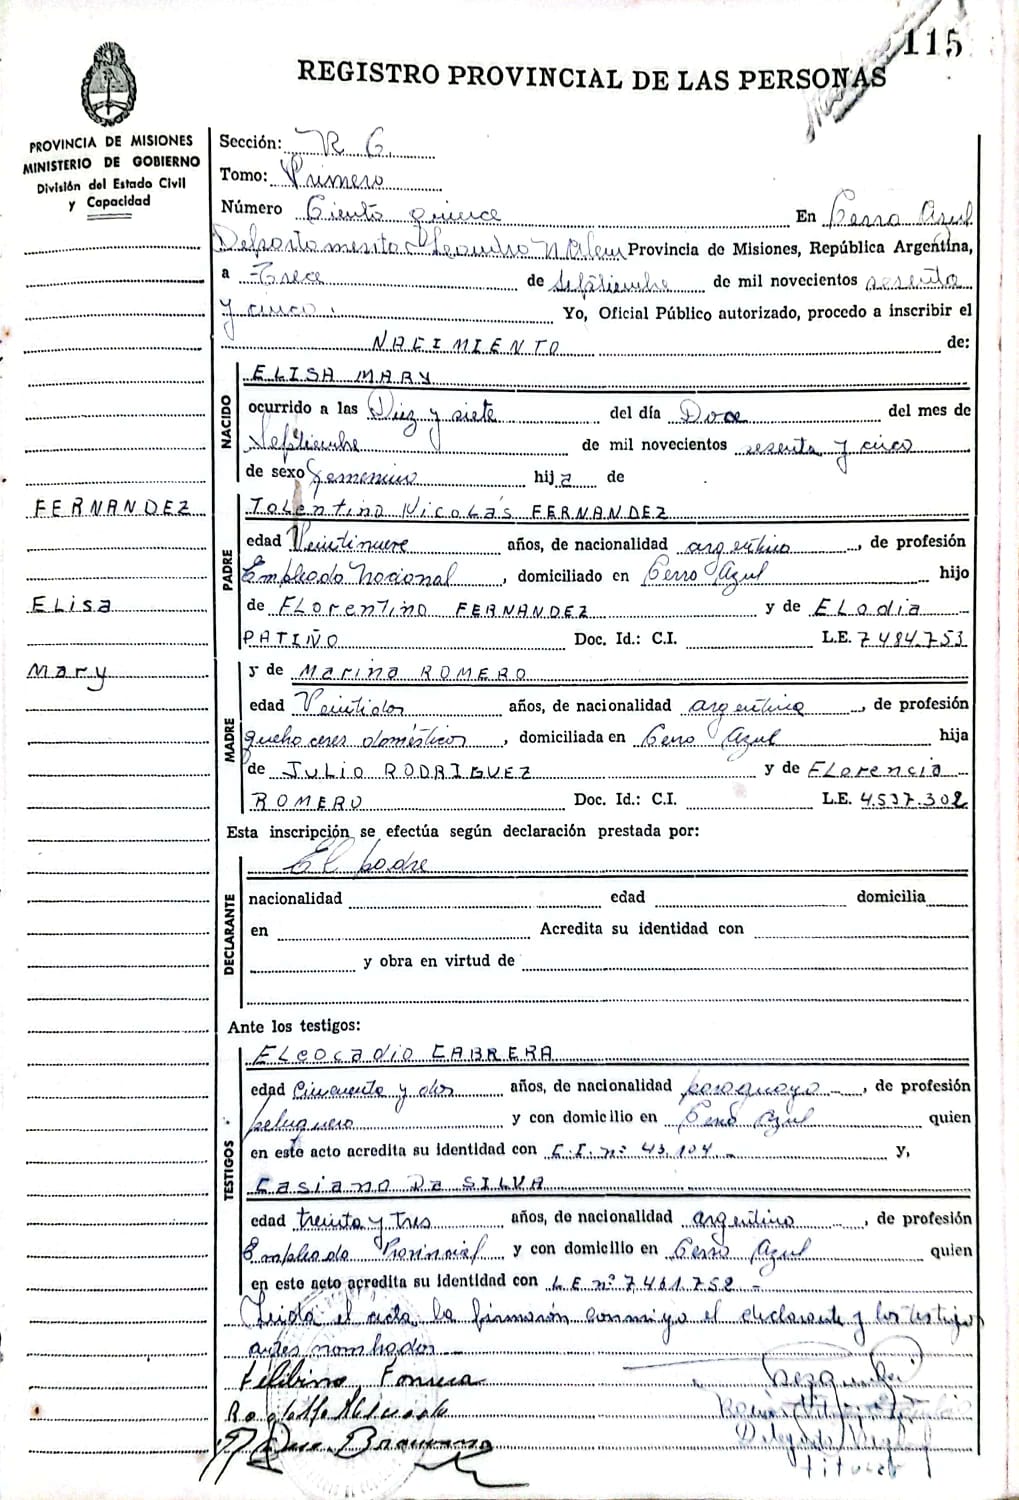 115
REGISTRO PROVINCIAL DE LAS PERSONAS
PROVINCIA DE MISIONES
MINISTERIO DE GOBIERNO
División del Estado Civil
y Capacidad
Sección: R G.
Tomo: Primero
Número Ciento quince En Cerro Azul
Departamento Leandro N Alem Provincia de Misiones, República Argentina,
a Trece de Septiembre de mil novecientos sesenta
y cinco. Yo, Oficial Público autorizado, procedo a inscribir el
NACIMIENTO de:
NACIDO
ELISA MARY
ocurrido a las Diez y siete del día Doce del mes de
Septiembre de mil novecientos sesenta y cinco
de sexo femenino hija de
FERNANDEZ
Elisa
Mary
PADRE
Tolentino Nicolás FERNANDEZ
edad Veintinueve años, de nacionalidad argentino, de profesión
Empleado Nacional, domiciliado en Cerro Azul hijo
de Florentino FERNANDEZ y de Elodia
PATIÑO Doc. Id.: C.I. L.E. 7.484.753
MADRE
y de Marina ROMERO
edad Veintidos años, de nacionalidad argentina, de profesión
quehaceres domésticos, domiciliada en Cerro Azul hija
de JULIO RODRIGUEZ y de Florencia
ROMERO Doc. Id.: C.I. L.E. 4.537.302
Esta inscripción se efectúa según declaración prestada por:
El padre
DECLARANTE
nacionalidad edad domicilia
en Acredita su identidad con
y obra en virtud de
Ante los testigos:
TESTIGOS
Eleocadio CABRERA
edad Cincuenta y dos años, de nacionalidad paraguayo, de profesión
peluquero y con domicilio en Cerro Azul quien
en este acto acredita su identidad con C.I. nº 43.104.- y,
Casiano Da SILVA
edad treinta y tres años, de nacionalidad argentino, de profesión
Empleado Provincial y con domicilio en Cerro Azul quien
en este acto acredita su identidad con L.E. nº 7.461.752 -
Leida el acta la firmarón conmigo el declarante y los testigos
antes nombrados
Titular